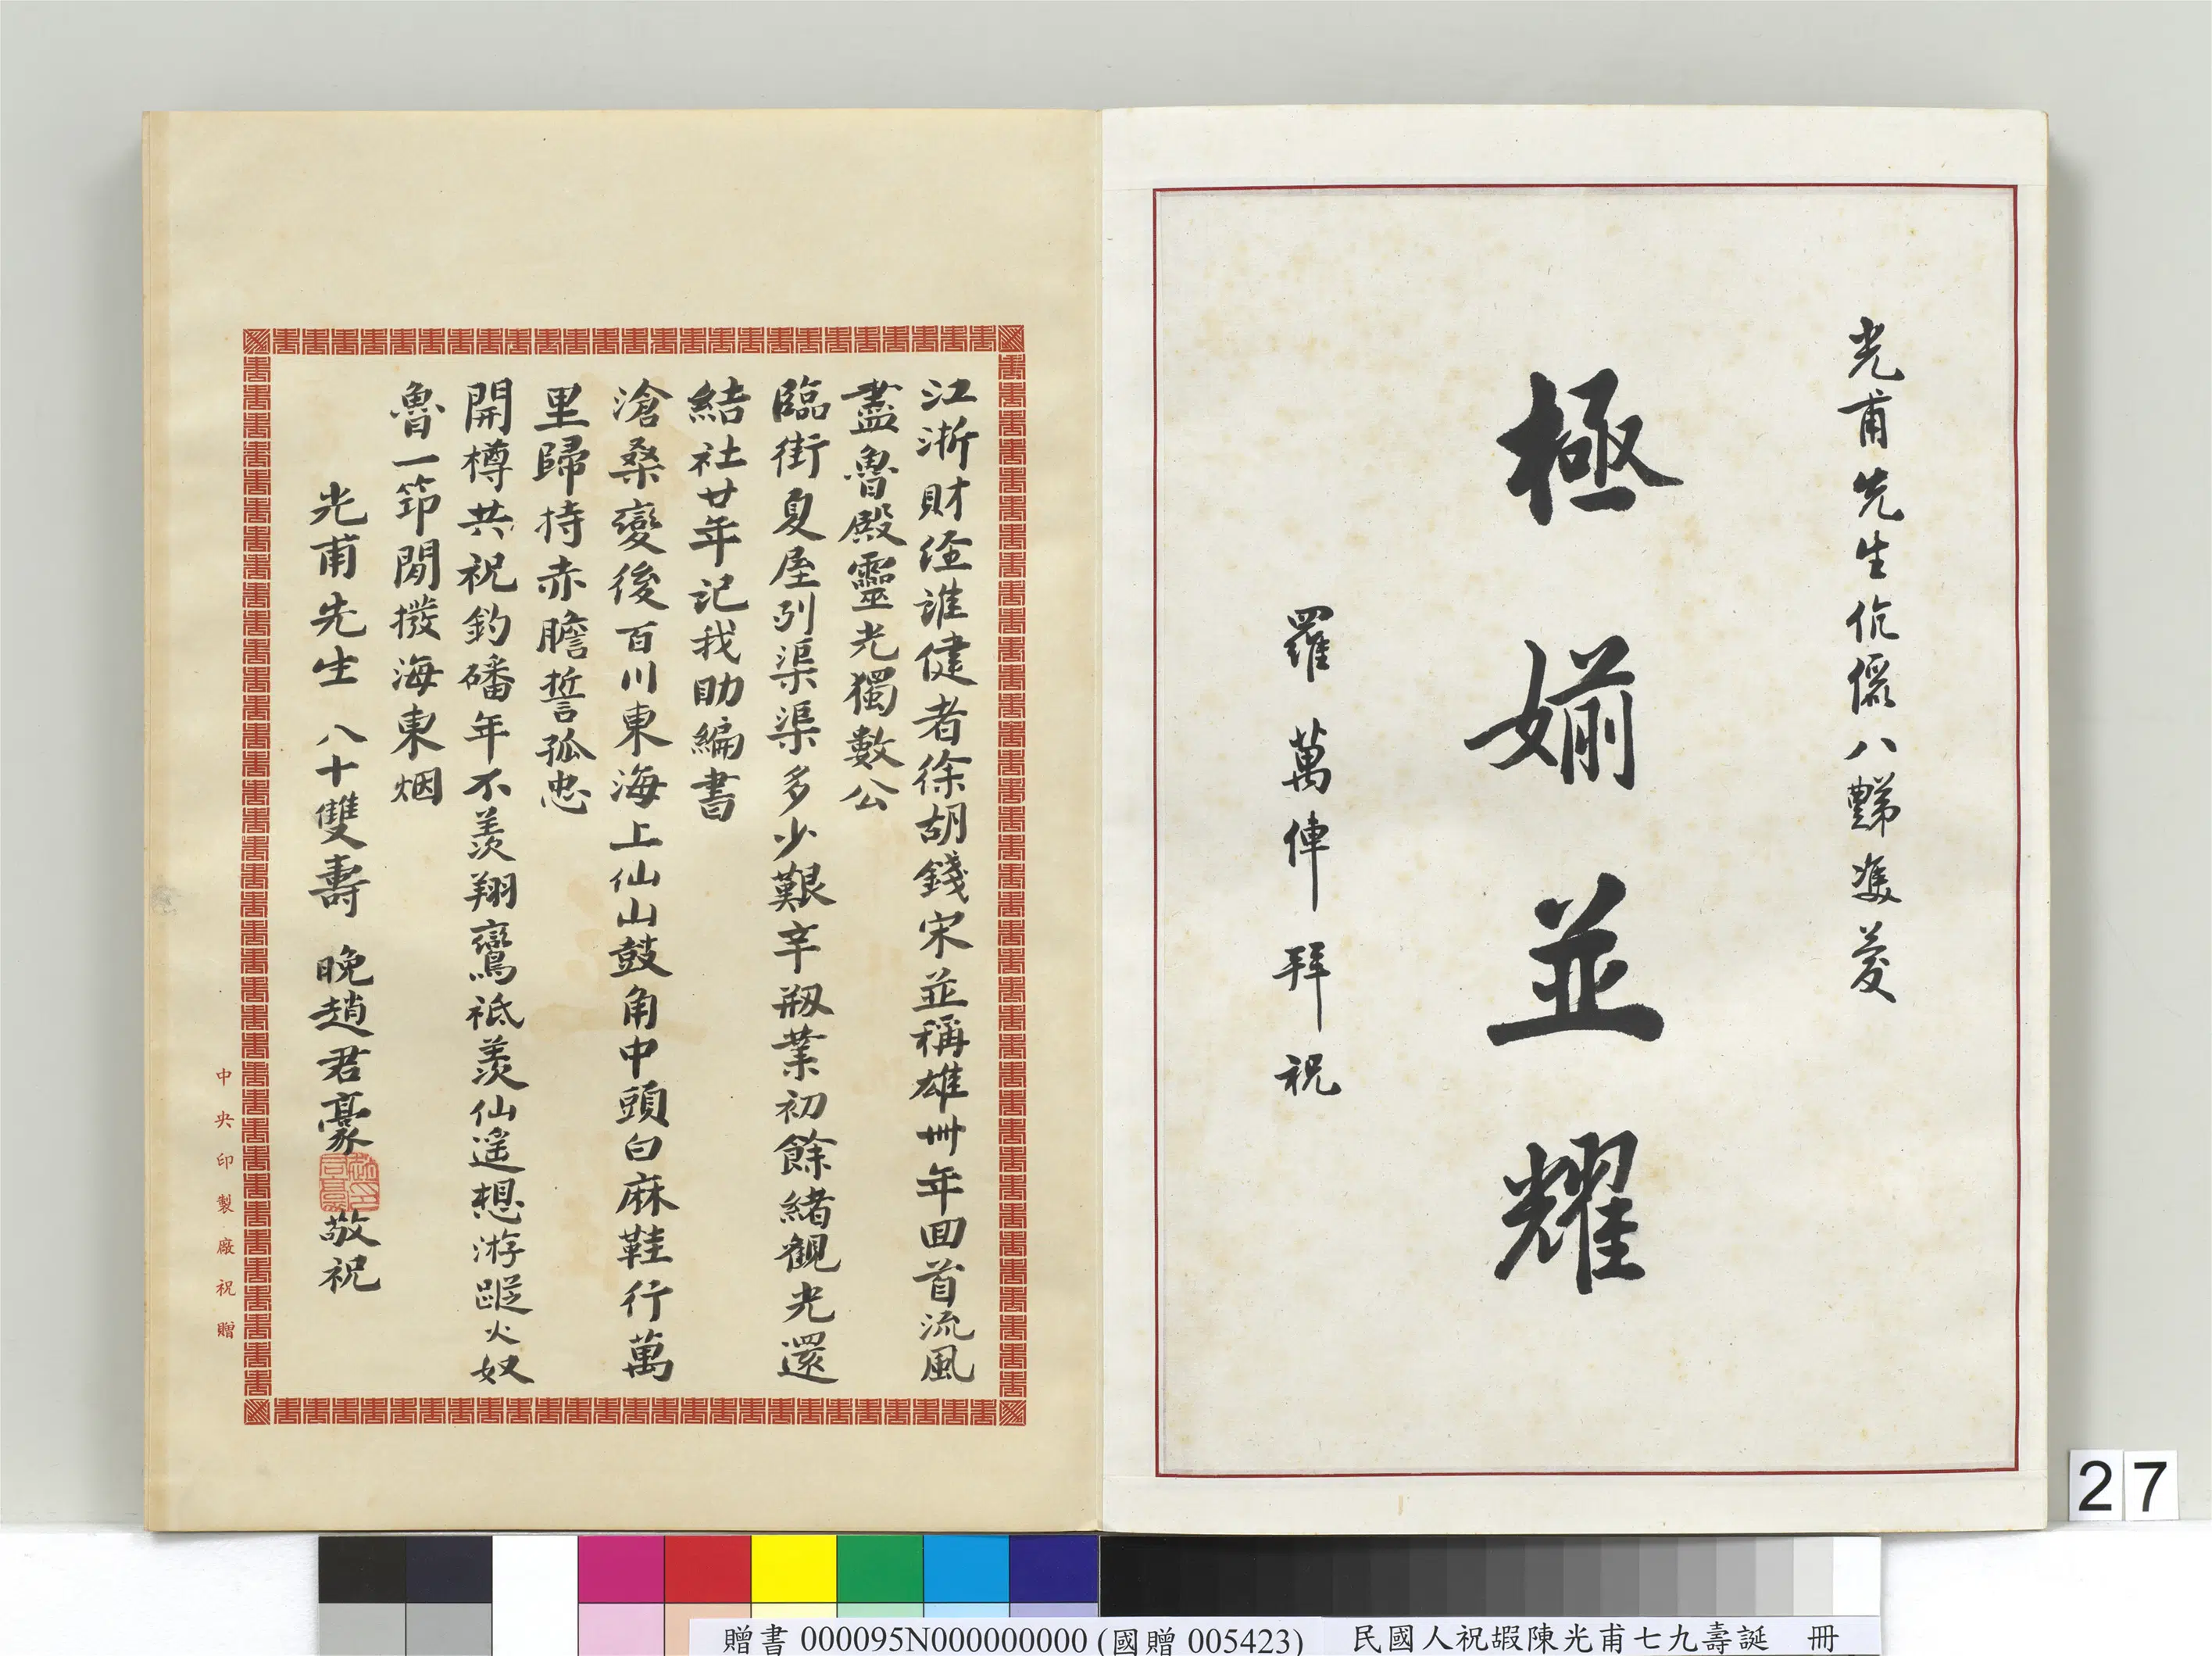 光甫先生伉儷八豑雙慶
極婣並耀
羅萬俥拜祝
江浙財經誰健者徐胡錢宋並稱雄卌年回首流風
盡魯殿靈光獨數公
臨街夏屋列渠渠多少艱辛剏業初餘緒觀光還
結社廿年記我助編書
滄桑變後百川東海上仙山鼓角中頭白麻鞋行萬
里歸持赤膽誓孤忠
開樽共祝釣磻年不羨翔鸞祗羨仙遙想游蹤火奴
魯一笻閒撥海東烟
光甫先生 八十雙壽 晚趙君豪 敬祝
中央印製廠祝贈
27
贈書 000095N000000000 (國贈 005423) 民國人祝嘏陳光甫七九壽誕 冊